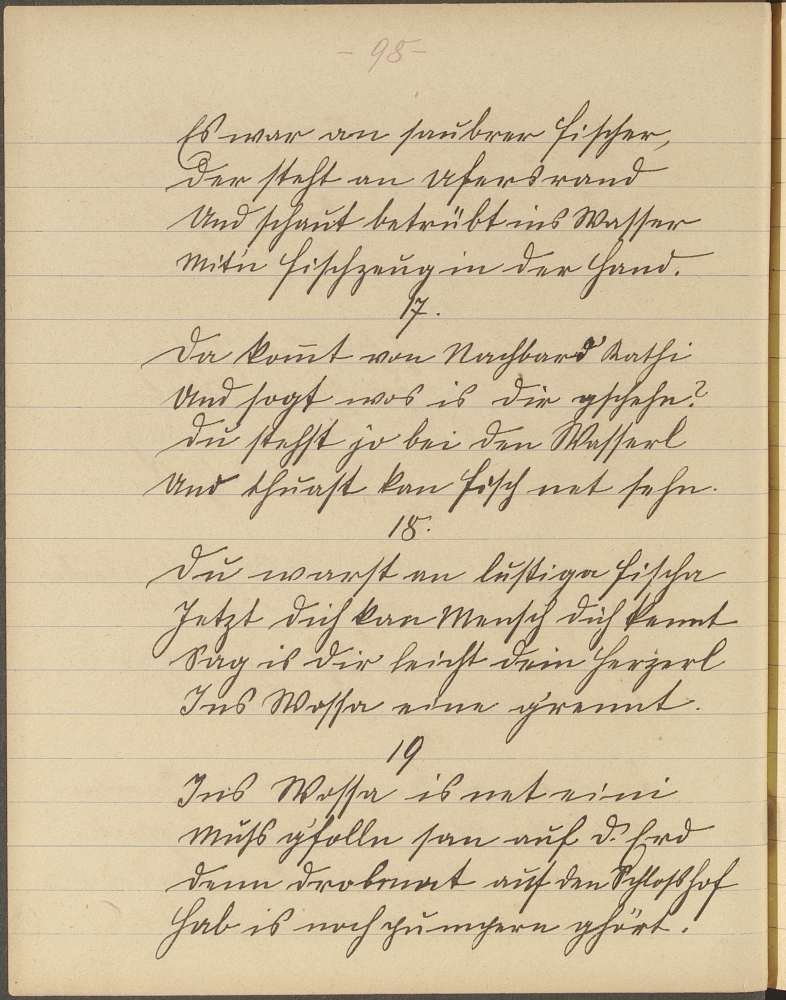 - 98 -
Es war an saubrer Fischer,
Der steht an Ufersrand
Und schaut betrübt ins Wasser
Mit'n Fischzeug in der Hand.
17.
Da kom̄t von Nachbard' Kathi
Und sogt wos is dir gschehn?
Du stehst jo bei den Wasserl
Und thuast kan Fisch net sehn.
18.
Du warst an lustiga Fischa
Jetzt dich kan Mensch dich kennt
Sag is dir leicht dein Herzerl
Ins Wossa eine g'rennt.
19
Ins Wossa is net eini
Muss g'folln san auf d' Erd
denn drobmat auf den Schlosshof
Hab is noch pumpern ghört.